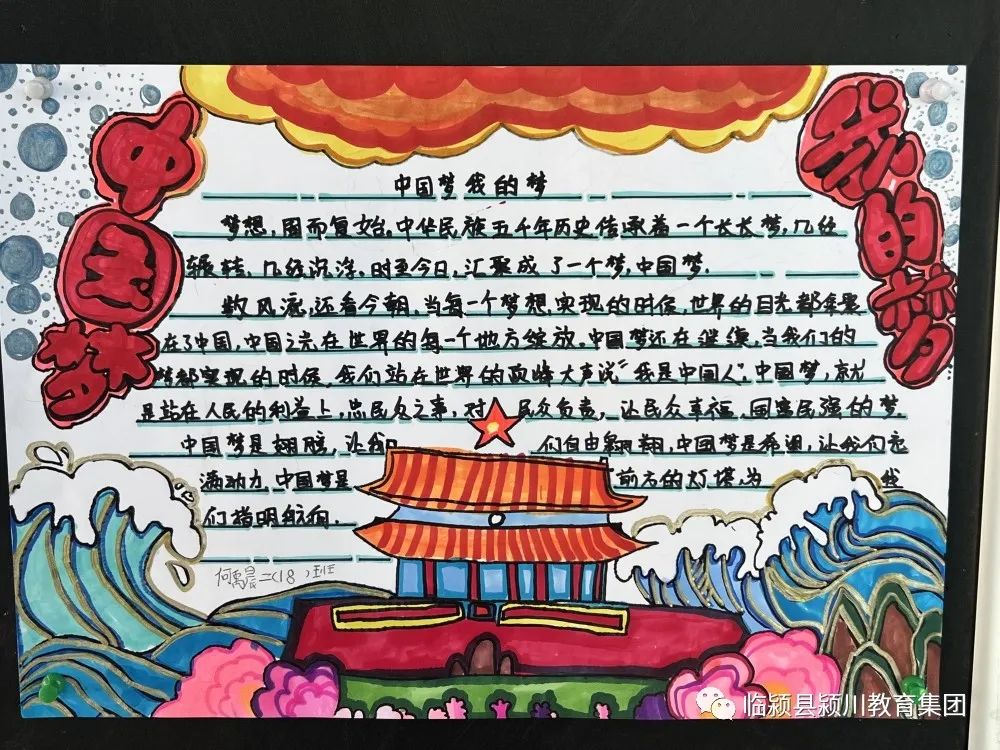 中国梦
我的梦
中国梦我的梦
梦想,周而复始。中华民族五千年历史传承着一个长长梦,几经
辗转、几经沉浮。时至今日,汇聚成了一个梦,中国梦.
数风流,还看今朝。当每一个梦想实现的时候,世界的目光都
在了中国,中国之光在世界的每一个地方绽放。中国梦还在继续,当我们的
梦都实现的时候,我们站在世界的巅峰大声说“我是中国人”。中国梦,就
是站在人民的利益上,忠民众之事,对民众负责,让民众幸福,国富民强的梦.
中国梦是翅膀,让我们自由翱翔,中国梦是希望,让我们充
满动力,中国梦是前方的灯塔,为我
们指明航向.
何禹晨二(18)班
临颍县颍川教育集团